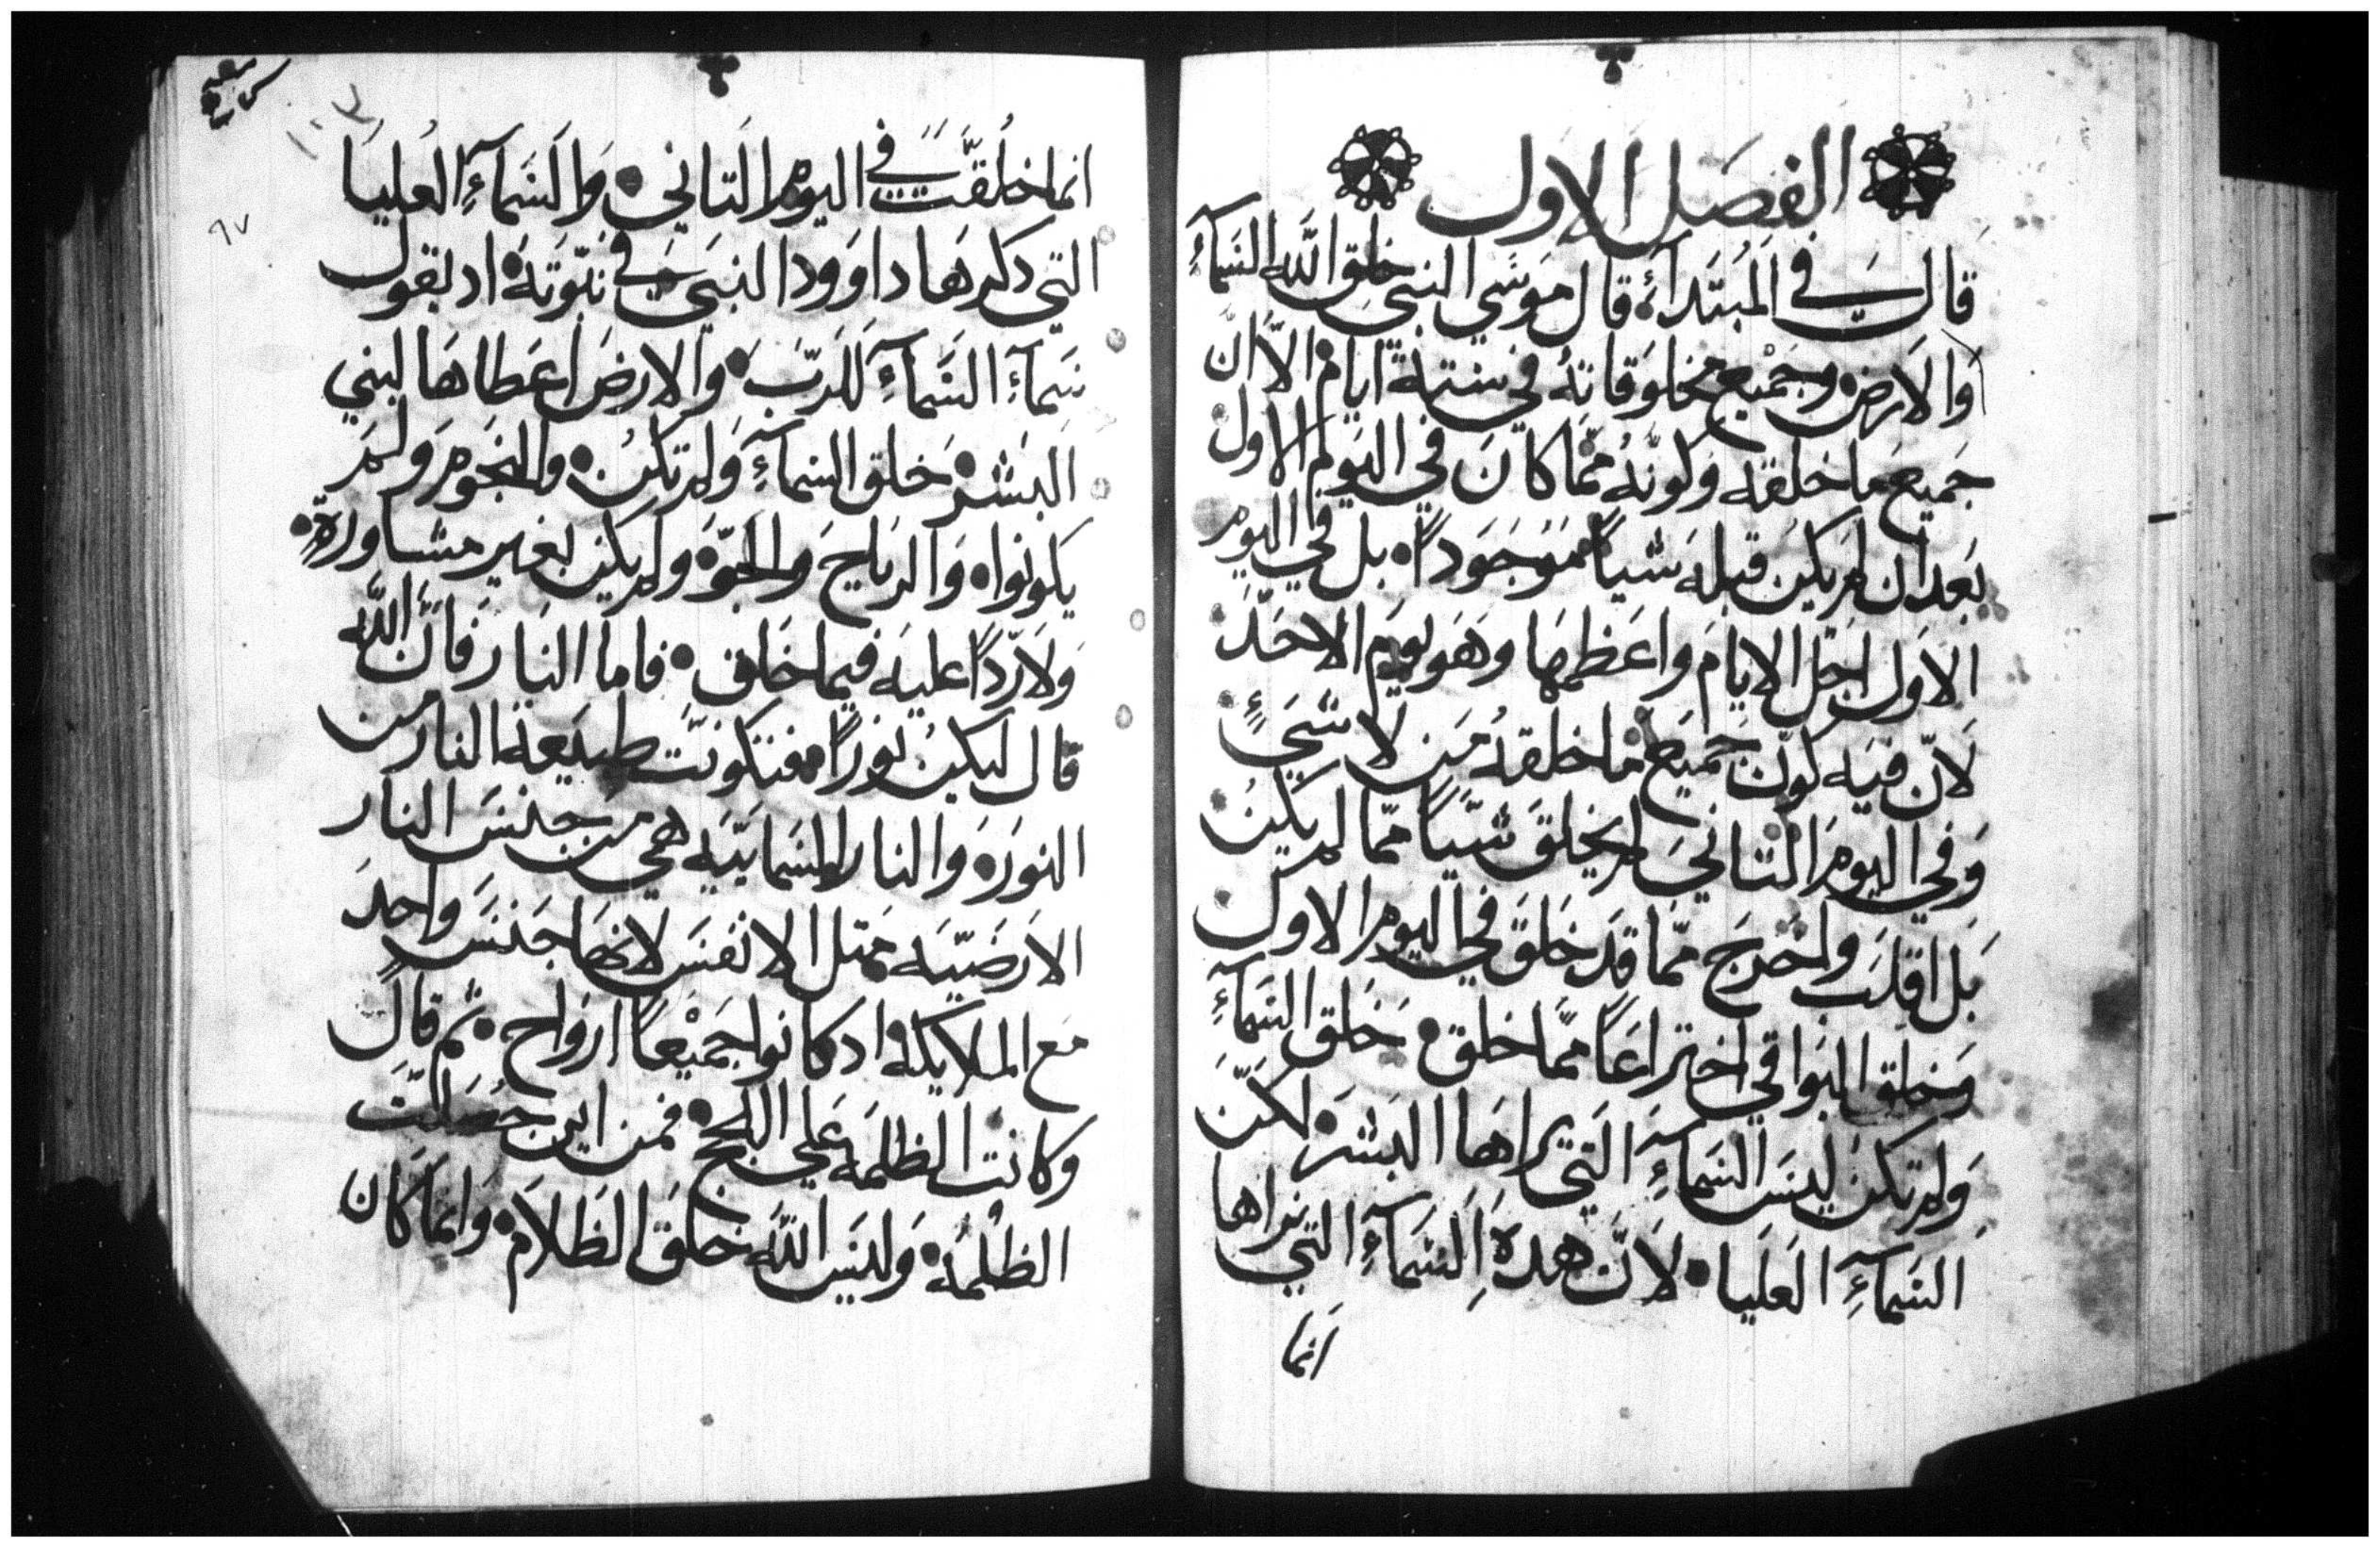 الفصل الاول
قال في المبتداء قال موسي النبي خلق الله السماء
والارض وجميع مخلوقاته في ستة ايام الا ان
جميع ما خلقه وكونه مما كان في اليوم الاول
بعد ان لم يكن قبله شياً موجوداً بل في اليوم
الاول اجل الايام واعظمها وهو يوم الاحد
لان فيه كون جميع ما خلقه من لا شيءٍ
وفي اليوم التاني لم يخلق شياً مما لم يكن
بل اقلب واخرج مما قد خلق في اليوم الاول
وخلق البواقي اختراعاً مما خلق خلق السماءِ
ولم تكن ليس السماءِ التي يراها البشر لكن
السماءِ العليا لان هده السماءِ التي نراها
انما
انما خلقت في اليوم التاني والسماءِ العليا
التي دكرها داوود النبي في نبوته اد يقول
سماء السماءِ للرب والارض اعطاها لبني
البشر خلق السماءِ ولم تكن والنجوم ولم
يكونوا والرياح والجو ولم يكن بغير مشاورةٍ
ولا رداً عليه فيما خلق فاما النار فان الله
قال ليكن نوراً فتكونت طبيعة النار من
النور والنار السمايية هي من جنس النار
الارضيه متل الانفس لانها جنس واحد
مع الملايكه اد كانوا جميعاً ارواح ثم قال
وكانت الظلمه علي اللج فمن اين حصلت
الظلمه وليس الله خلق الظلام وانما كان
٩٧